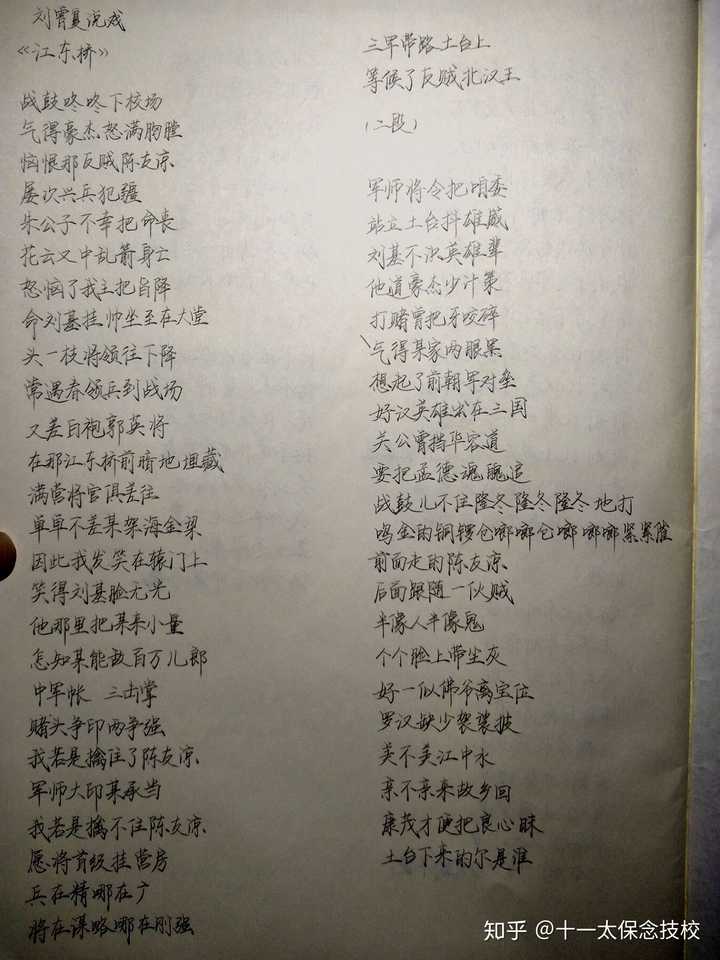 刘曾复说戏
《江东桥》
战鼓咚咚下校场
气得豪杰怒满胸膛
恼恨那反贼陈友凉
屡次兴兵犯疆
朱公子不幸把命丧
花云又中乱箭身亡
怒恼了我主把旨降
命刘基挂帅坐至在大堂
头一枝将领往下降
常遇春领兵到战场
又差白袍郭英将
在那江东桥前暗地埋藏
满营将官俱差往
单单不差某架海金梁
因此我发笑在辕门上
笑得刘基脸无光
他那里把某来小量
怎知某能敌百万儿郎
中军帐 三击掌
赌头争印两争强
我若是擒住了陈友凉
军师大印某承当
我若是擒不住陈友凉
愿将首级挂营房
兵在精哪在广
将在谋略哪在刚强
三军带路土台上
等候了反贼北汉王
(二段)
军师将令把咱委
站立土台抖雄威
刘基不识英雄辈
他道豪杰少计策
打赌曾把牙咬碎
气得某家两眼黑
想起了前朝军对垒
好汉英雄出在三国
关公曾挡华容道
要把孟德魂魄追
战鼓儿不住隆冬隆冬隆冬地打
鸣金的铜锣仓啷啷仓啷啷啷紧紧催
前面走的陈友凉
后面跟随一伙贼
半像人半像鬼
个个脸上带尘灰
好一似佛爷离宝位
罗汉缺少袈裟披
美不美江中水
亲不亲来故乡回
康茂才便把良心昧
土台下来的尔是谁
知乎 @十一太保念技校